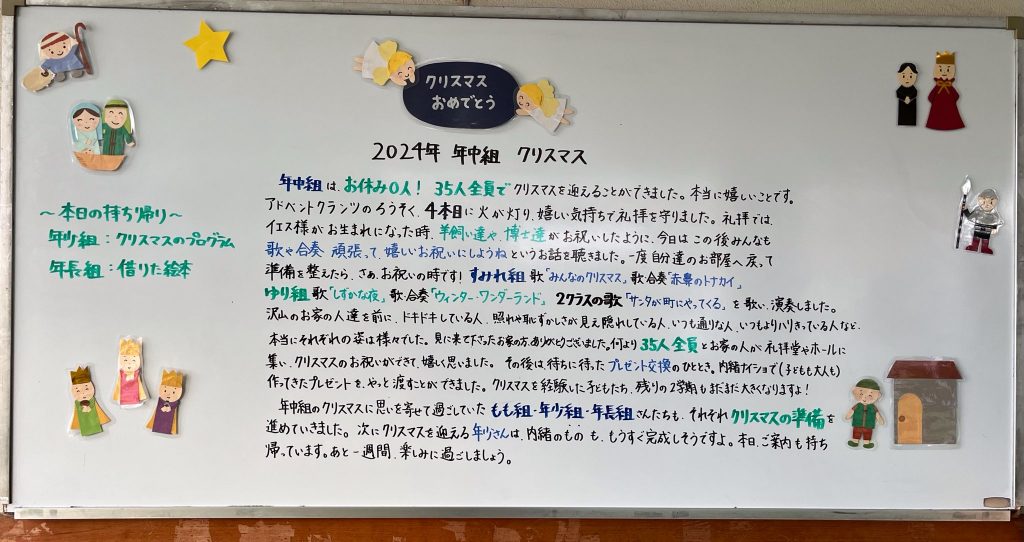 クリスマス
おめでとう
2024年 年中組 クリスマス
年中組は、お休み0人！ 35人全員でクリスマスを迎えることができました。本当に嬉しいことです。
アドベントクランツのろうそく、4本目に火が灯り、嬉しい気持ちで礼拝を守りました。礼拝では、
イエス様がお生まれになった時、羊飼い達や、博士達がお祝いしたように、今日はこの後みんなも
歌や合奏 頑張って、嬉しいお祝いにしようねというお話を聴きました。一度自分達のお部屋へ戻って
準備を整えたら、さぁ、お祝いの時です！ すみれ組 歌「みんなのクリスマス」歌合奏「赤鼻のトナカイ」
ゆり組 歌「しずかな夜」歌・合奏「ウィンター・ワンダーランド」 2クラスの歌「サンタが町にやってくる」を歌い、演奏しました。
沢山のお家の人達を前に、ドキドキしている人、照れや恥ずかしさが見え隠れしている人、いつも通りな人、いつもよりハリきっている人など、
本当にそれぞれの姿は様々でした。見に来て下さったお家の方、ありがとうございました。何より35人全員とお家の人が礼拝堂やホールに
集い、クリスマスのお祝いができて、嬉しく思いました。 その後は、待ちに待ったプレゼント交換のひととき。内緒ナイショで(子どもも大人も)
作ってきたプレゼントを、やっと渡すことができました。クリスマスを経験した子どもたち、残りの2学期もまだまだ大きくなりますよ！
年中組のクリスマスに思いを寄せて過ごしていた もも組・年少組・年長組さんたちも、それぞれクリスマスの準備を
進めていきました。次にクリスマスを迎える年少さんは、内緒のものも、もうすぐ完成しそうですよ。本日、ご案内も持ち
帰っています。あと一週間、楽しみに過ごしましょう。
～本日の持ち帰り～
年少組：クリスマスのプログラム
年長組：借りた絵本